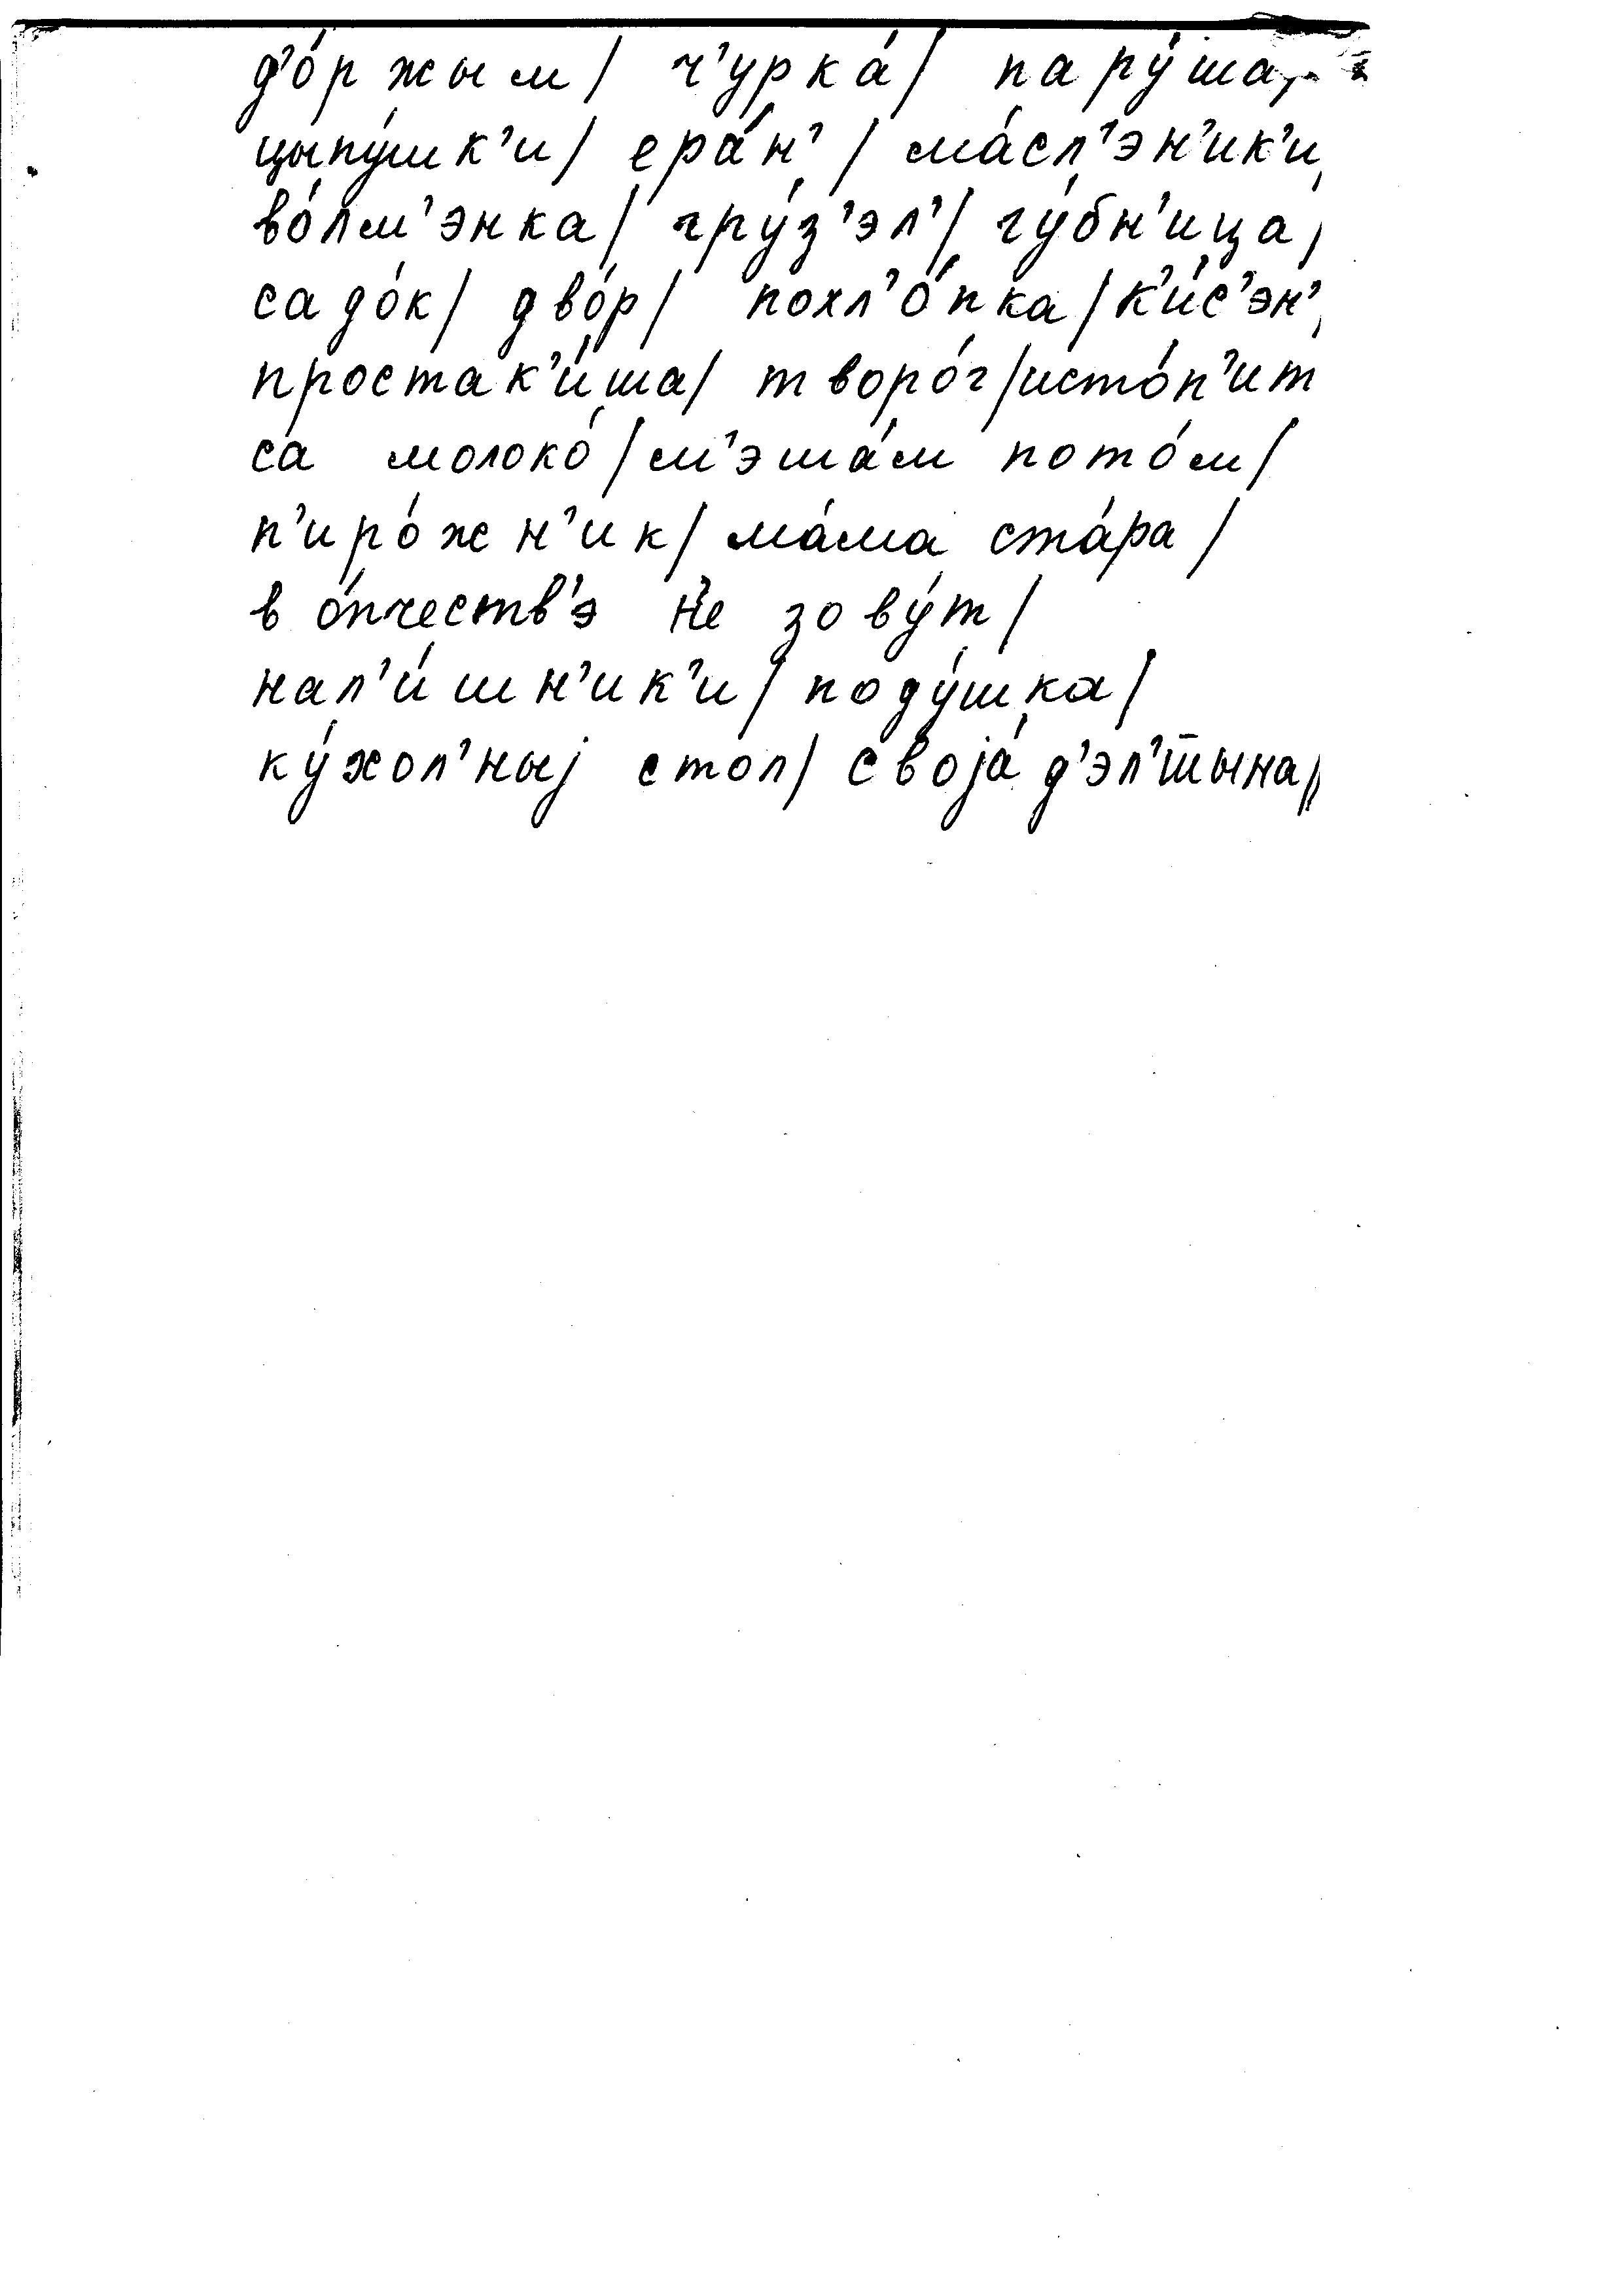 д'о́ржым/ ч'урка́/ пару́ша/
цыпу́шк'и/ ера́н'/ ма́сл'эн'ик'и/
во́лм'энка/ гру́з'эл'/ гу́бн'ица/
садо́к/ дво́р/ похл'о́пка/к'и́с'эн'/
простак'и́ша/ творо́г/исто́п'ит
са молоко́/м'эша́м пото́м/
п'иро́жн'ик/ ма́ма ста́ра/
в о́пчеств'э н'е зову́т/
нал'и́шн'ик'и/ поду́шка/
ку́хол'ныj стол/ своjа́ д'эл'тына//